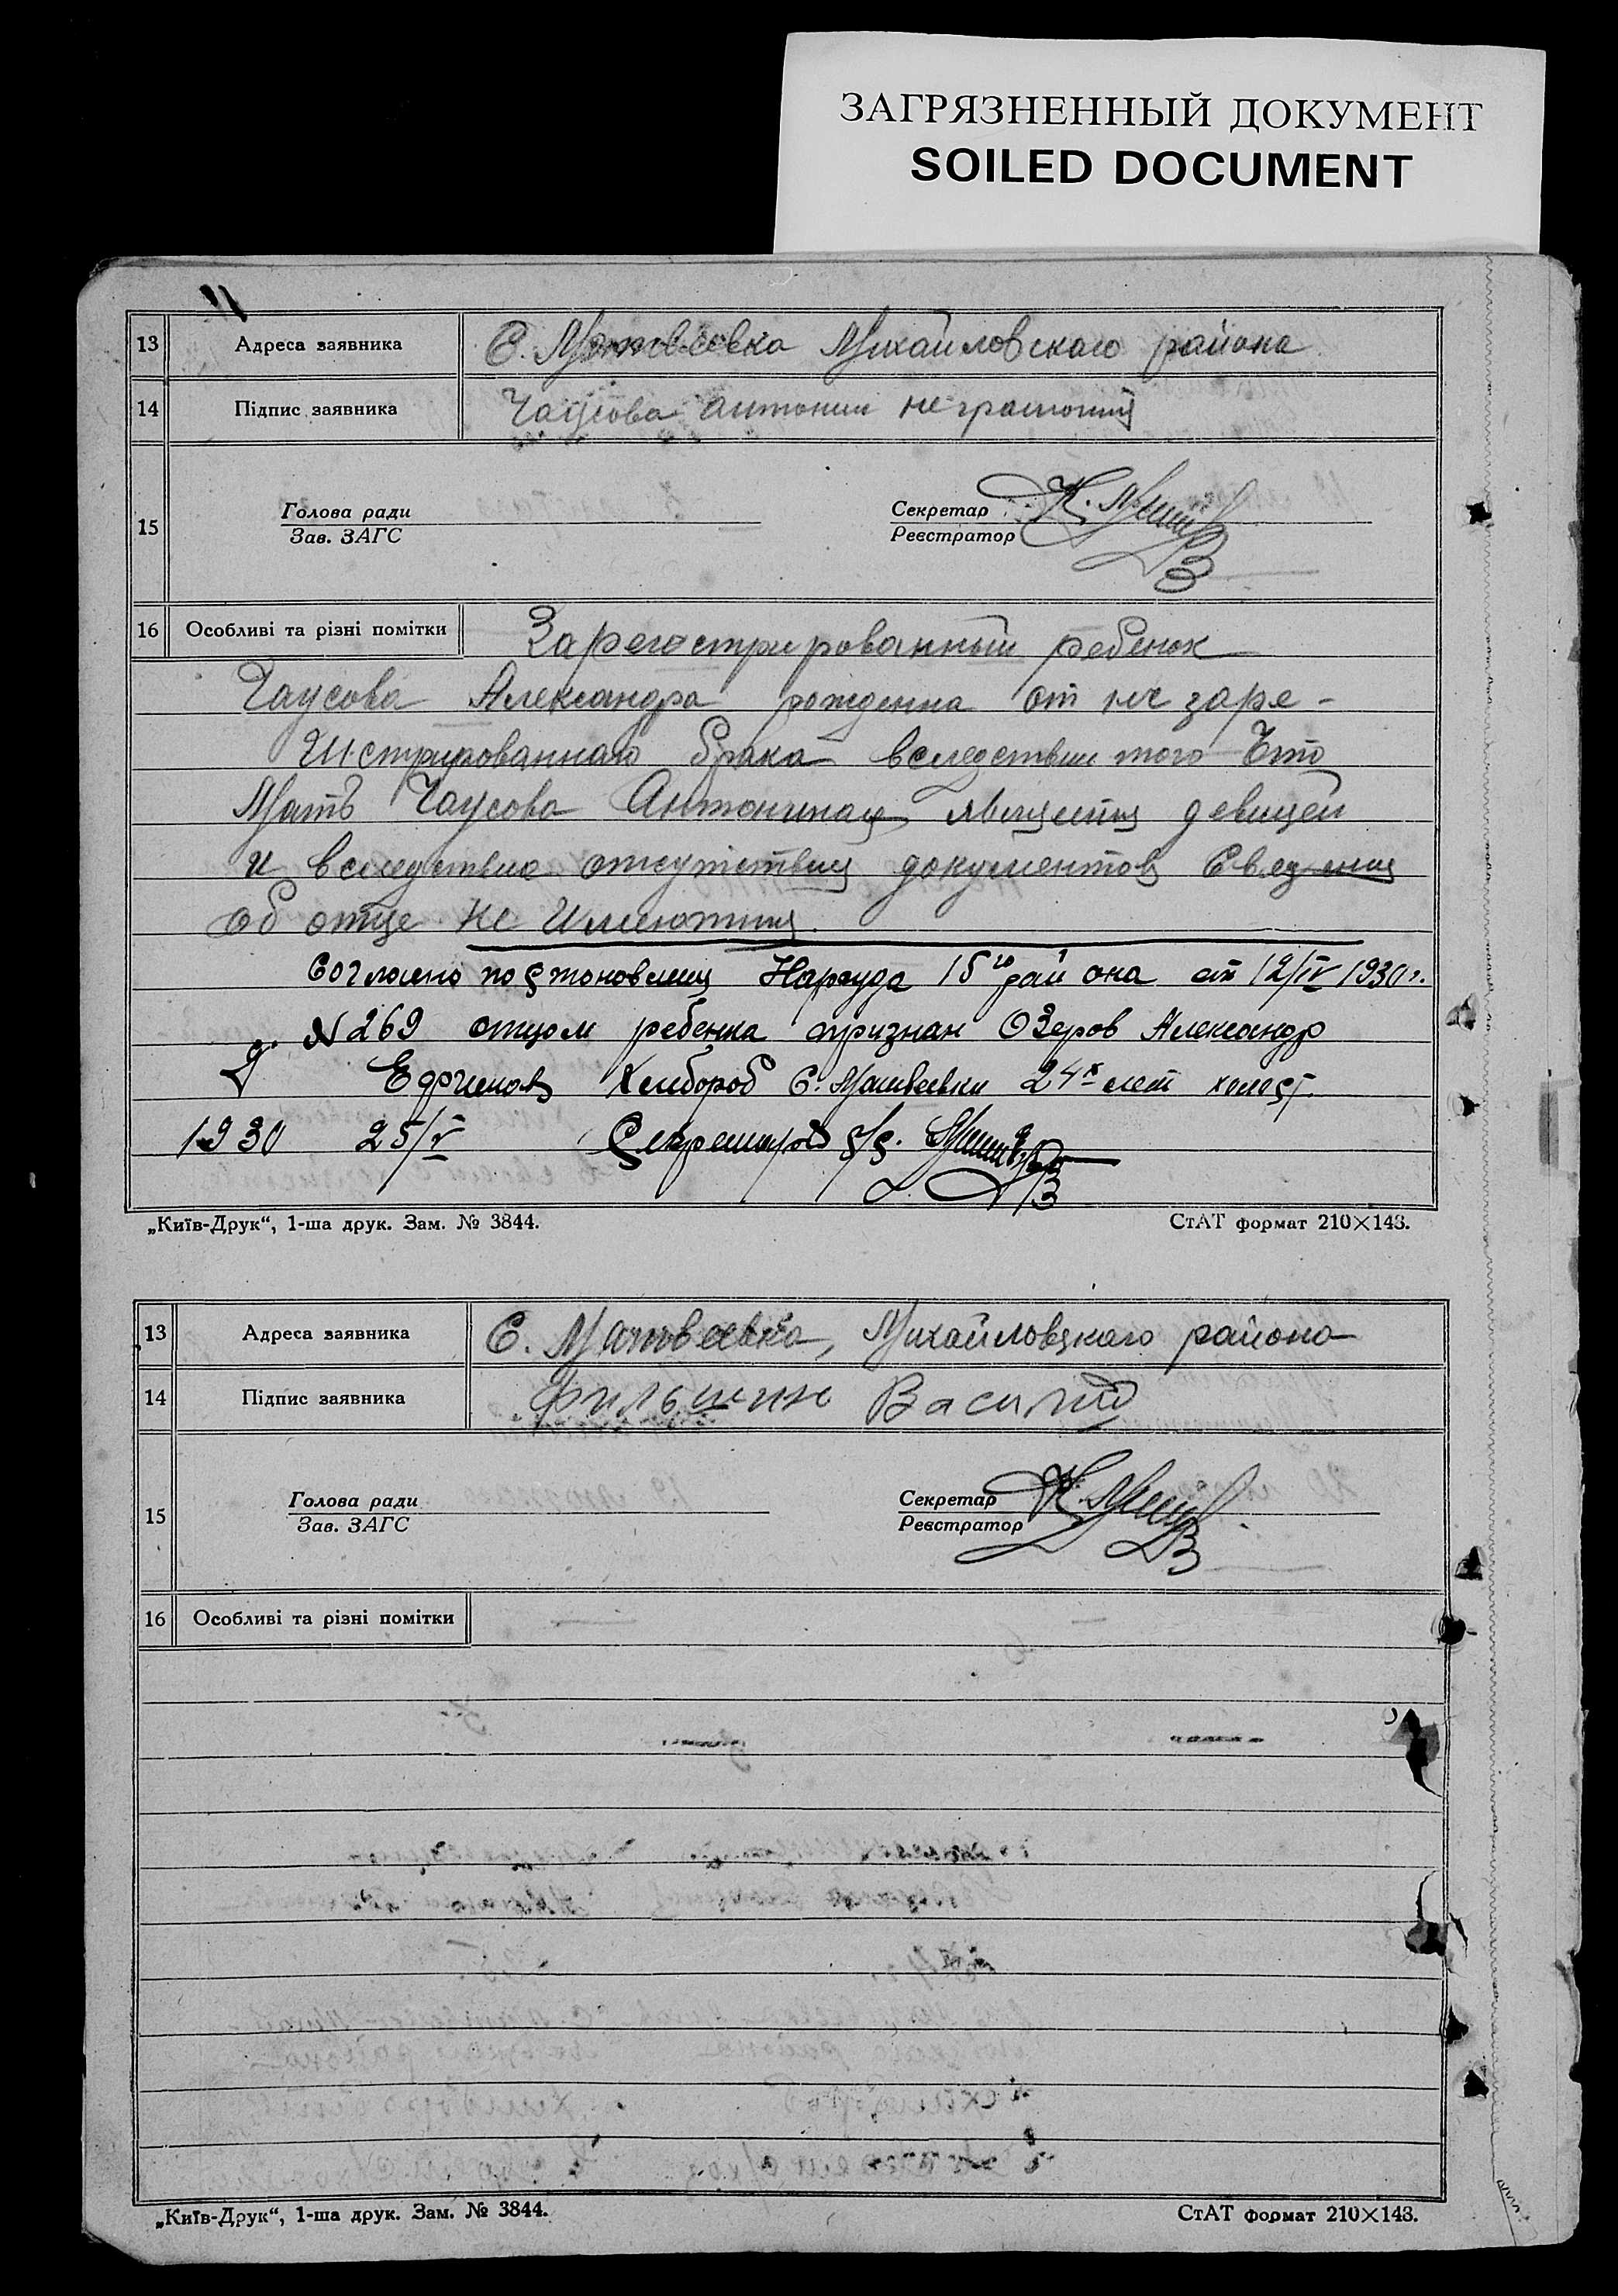 ЗАГРЯЗНЕННЫЙ ДОКУМЕНТ
SOILED DOCUMENT
13 Адреса заявника С. Матвеевка Михайловского района
14 Підпис заявника Чаусова Антонин неграмотня
15 Голова ради Секретар
Зав. ЗАГС Реєстратор
16 Особливі та різні помітки Зарегестрированный ребенок
Чаусова Александра рожденна от не заре-
гистрированнаго брака вследствии того что
Мать Чаусова Антонина является девицей
и вследствие отсутствия документов Сведения
об отце не имеются.
Согласно постоновления Нарсуда 15го района от 12/IV 1930 г.
№ 269 отцом ребенка признан Озеров Александр
Ефримов Хлибороб С. Матвеевки 24х лет холост.
1930 25/V Секретарь с/с.
„Київ-Друк“, 1-ша друк. Зам. № 3844. СтАТ формат 210×143.
13 Адреса заявника С. Матвеевка, Михайловского района
14 Підпис заявника Фильшин Василий
15 Голова ради Секретар
Зав. ЗАГС Реєстратор
16 Особливі та різні помітки
„Київ-Друк“, 1-ша друк. Зам. № 3844. СтАТ формат 210×143.